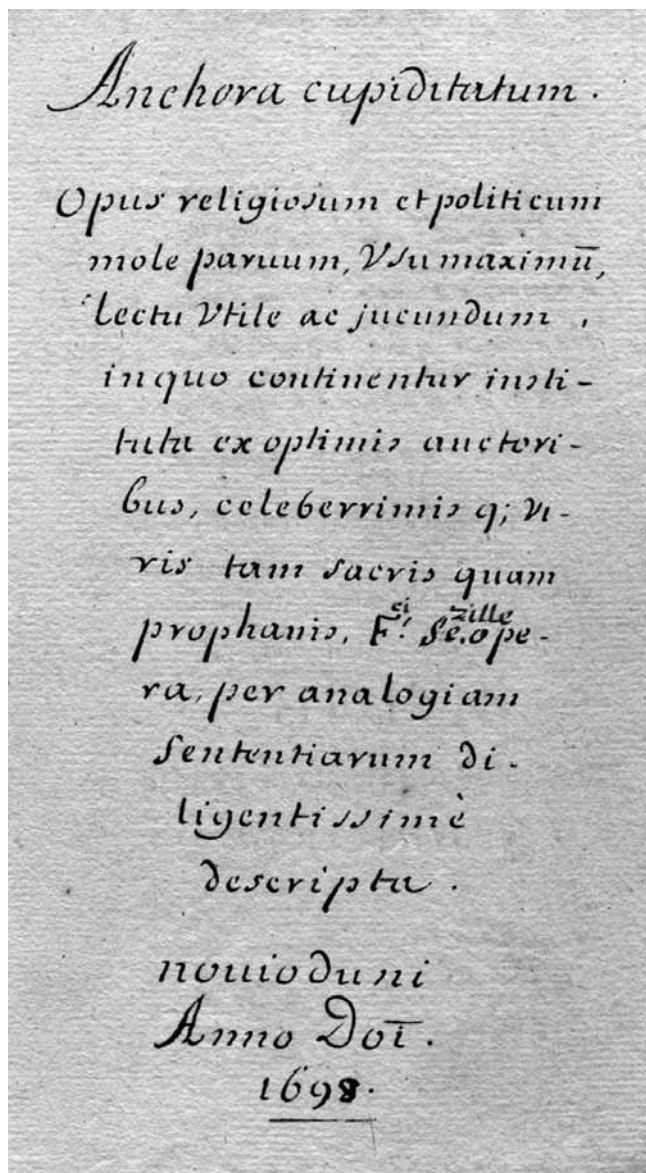 Anchora cupiditatum.
Opus religiosum et politicum
mole paruum, Vsu maximū,
lectu Vtile ac jucundum,
in quo continentur insti-
tuta ex optimis auctori-
bus, celeberrimis q; vi-
ris tam sacris quam
prophanis, F.ci Se.zille ope-
ra, per analogiam
Sententiarum di-
ligentissimè
descripta.
nouioduni
Anno Doī.
1698.